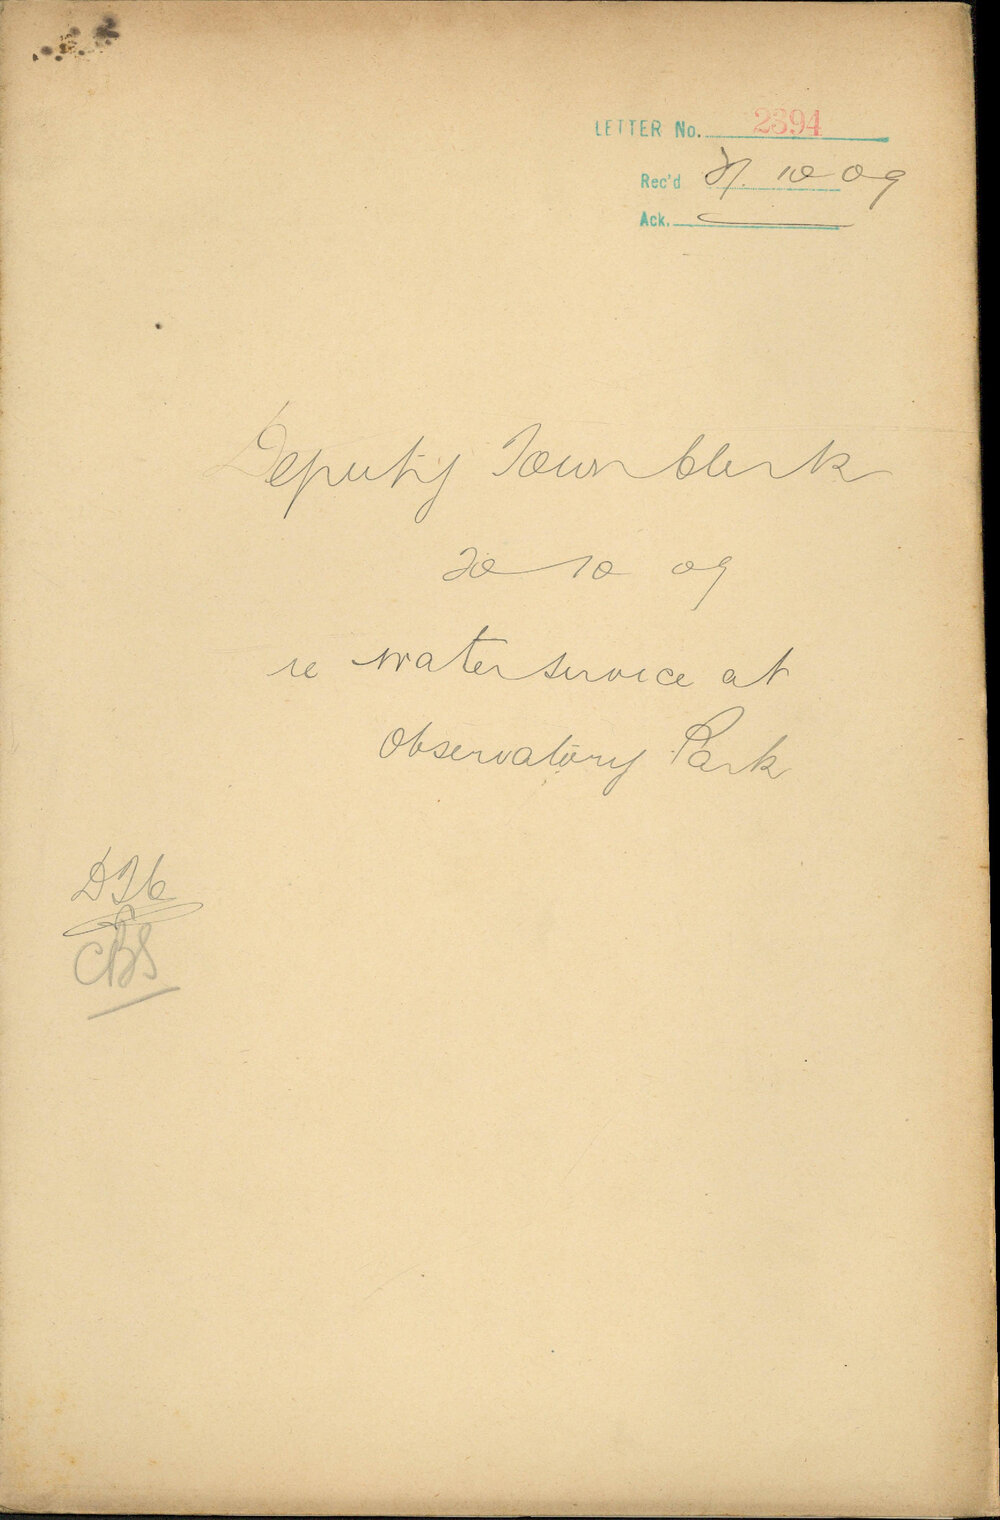 LETTER No. 2394
Rec'd 21. 10 09
Ack.
Deputy Town Clerk
20 10 09
re water service at
Observatory Park
DTC
CBS